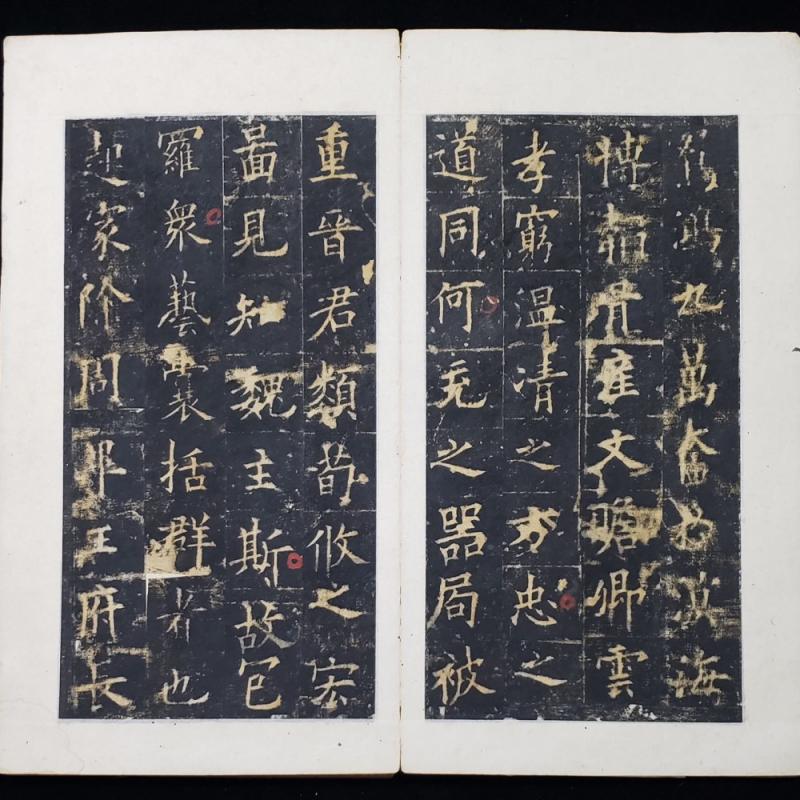 九萬奮於溟海
博崔文贍卿雲
孝窮溫清之方忠之
道同何充之器局被
重晉君類荀攸之宏
啚見知魏主斯故包
羅衆藝囊括群者也
起家除周王府長